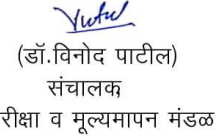 (डॉ.विनोद पाटील)
संचालक,
रीक्षा व मूल्यमापन मंडळ